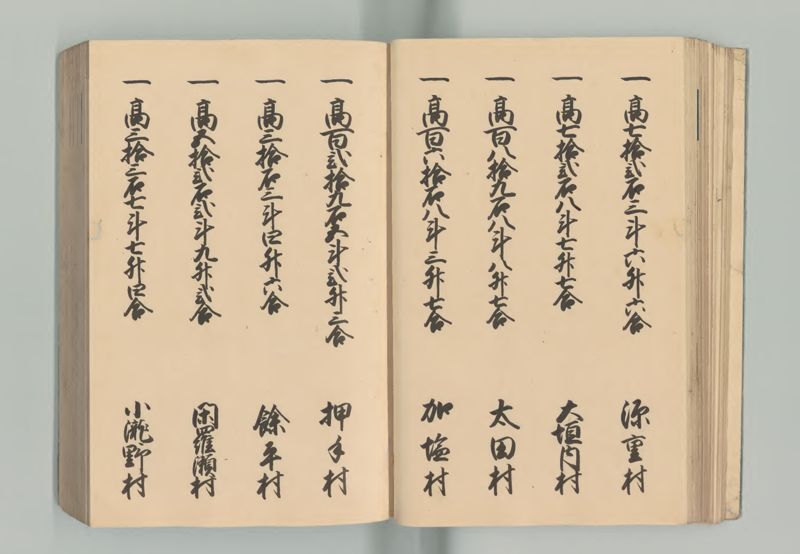 一高七拾弐石三斗六升六合 源重村
一高七拾弐石八斗七升七合 大垣内村
一高百八拾九石八斗八升七合 太田村
一高百六拾石八斗三升七合 加塩村
一高百弐拾九石五斗弐升三合 押手村
一高三拾石三斗四升六合 餘平村
一高五拾弐石弐斗九升弐合 閑羅瀬村
一高三拾三石七斗七升四合 小瀧野村